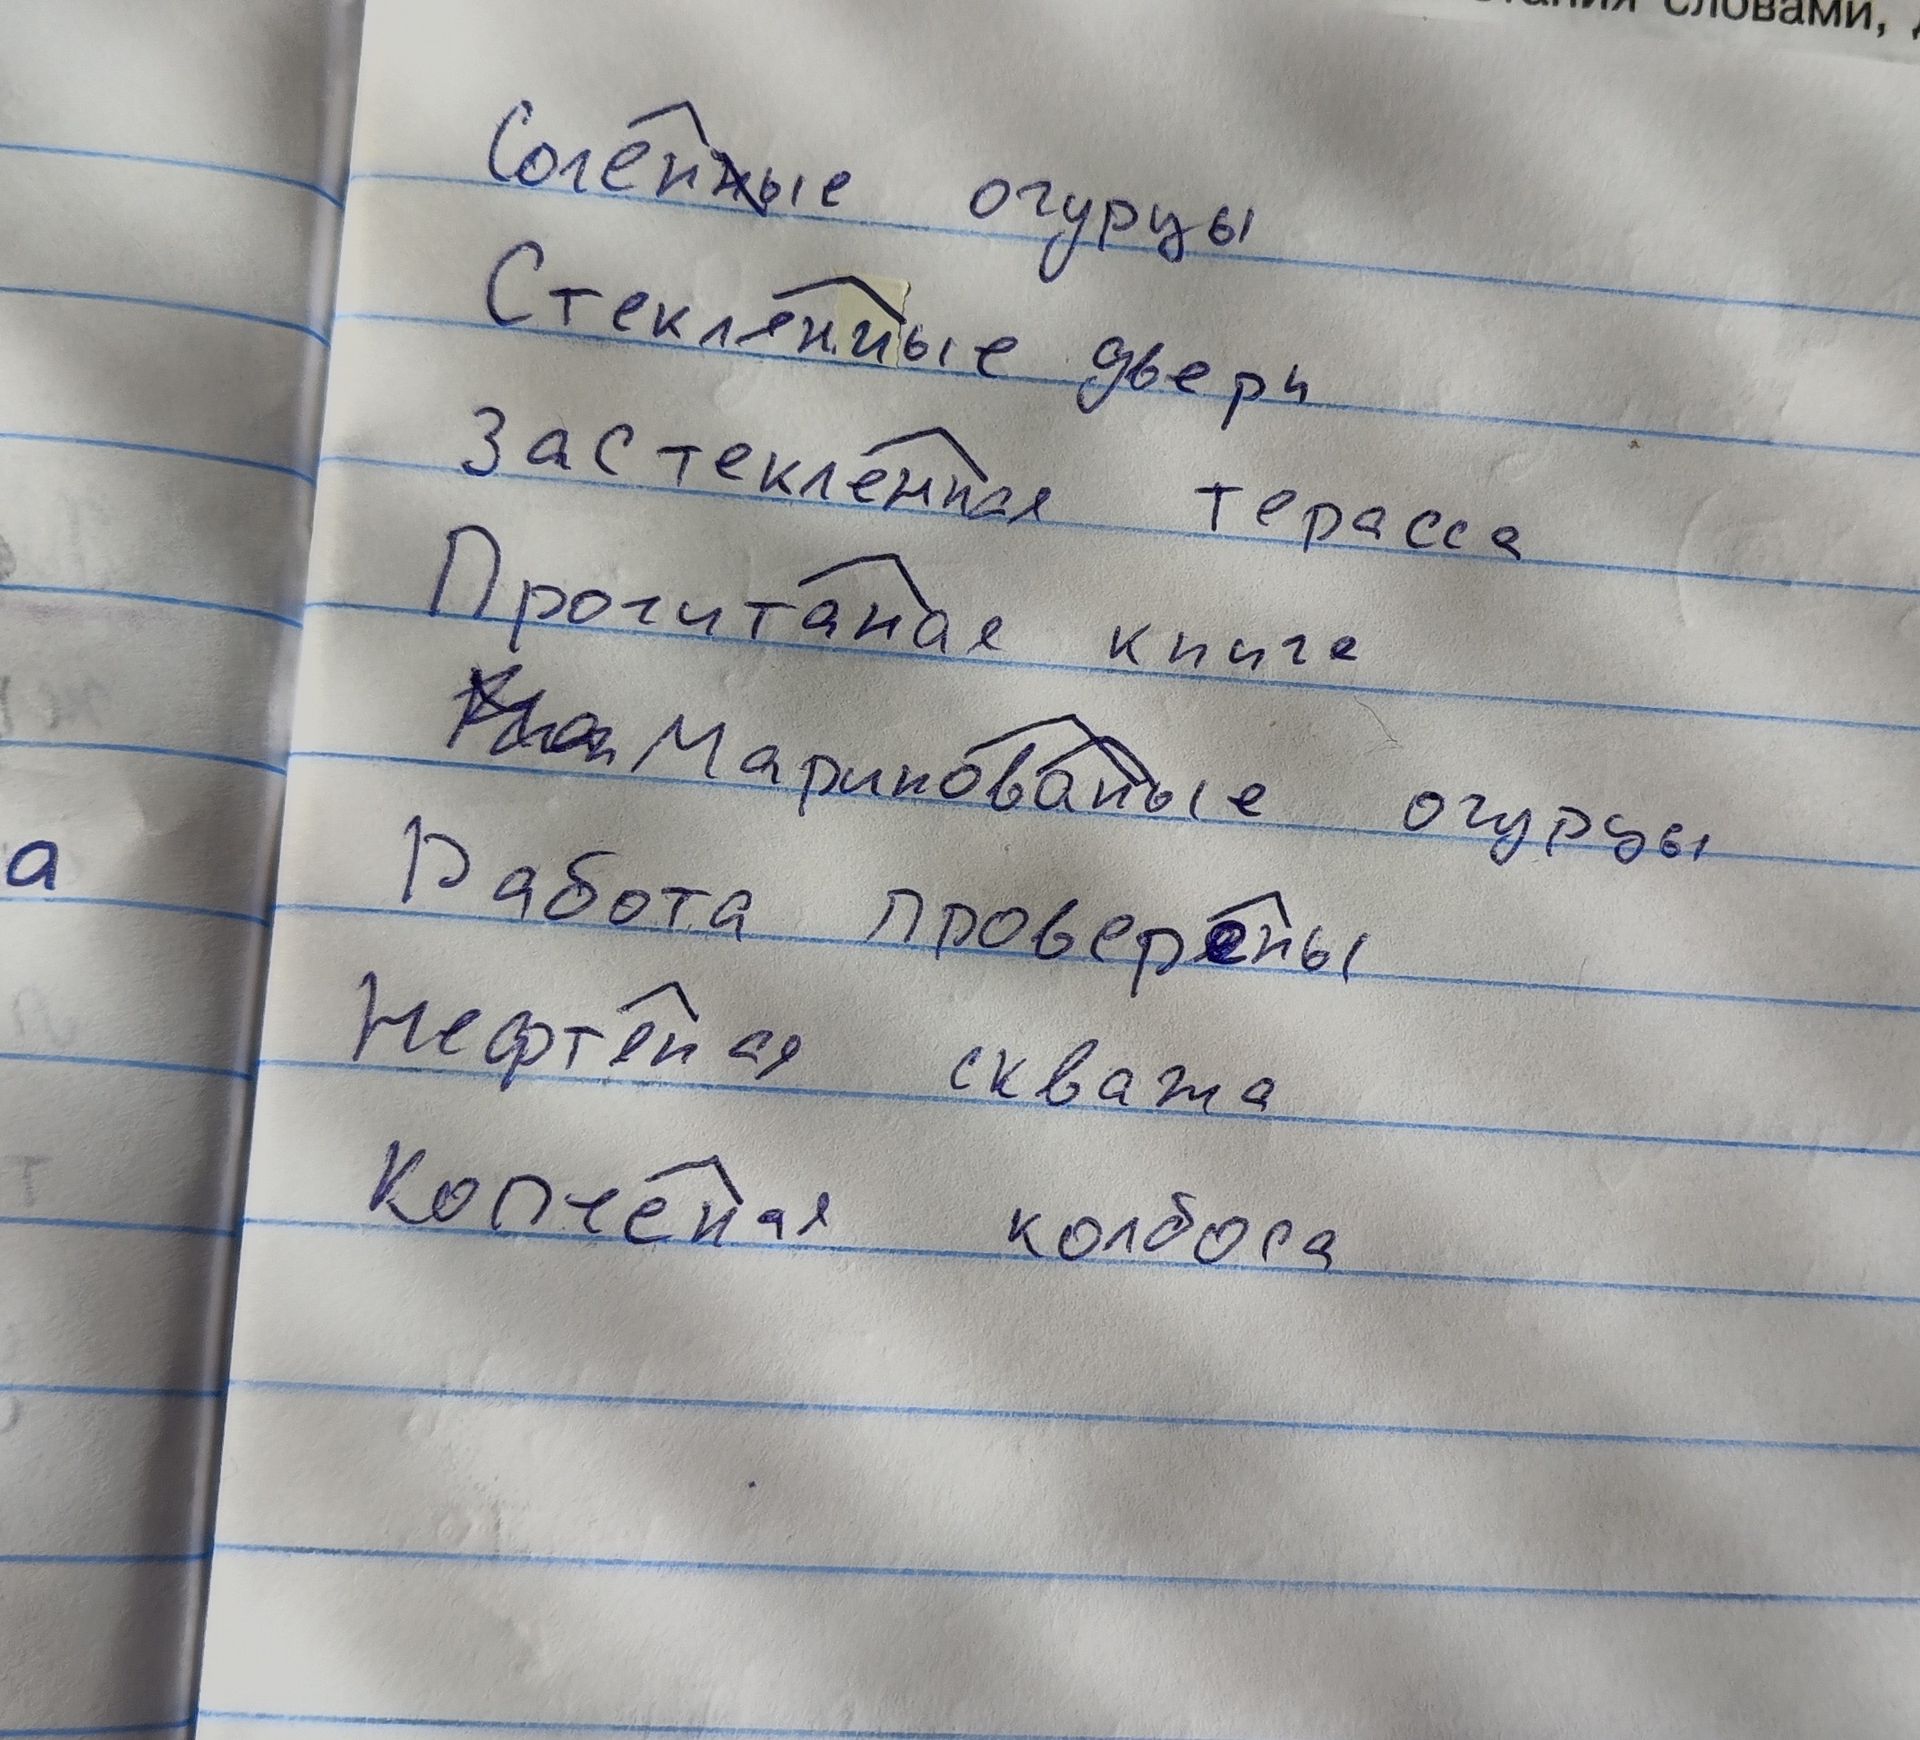 словами,
Соленые огурцы
Стеклянные двери
Застекленная терасса
Прочитаная книга
Маринованые огурцы
Работа проверены
Нефтяная скважа
Копченая колбоса
а